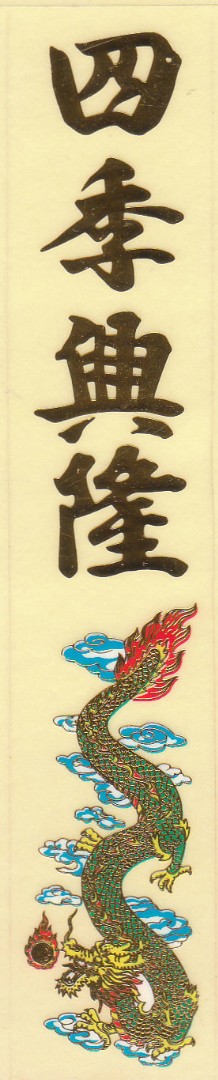 四季興隆